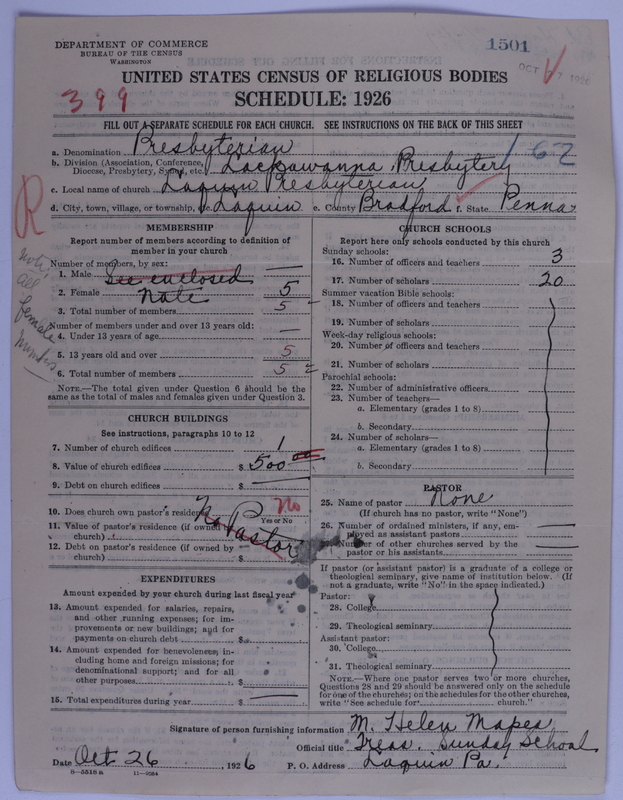 DEPARTMENT OF COMMERCE
BUREAU OF THE CENSUS
WASHINGTON
1501
OCT 7 1926
UNITED STATES CENSUS OF RELIGIOUS BODIES
399
SCHEDULE: 1926
FILL OUT A SEPARATE SCHEDULE FOR EACH CHURCH. SEE INSTRUCTIONS ON THE BACK OF THIS SHEET
a. Denomination Presbyterian
162
b. Division (Association, Conference, Diocese, Presbytery, Synod, etc.) Lackawanna Presbytery
c. Local name of church Laquin Presbyterian
d. City, town, village, or township, etc. Laquin e. County Bradford f. State Penna
R
Note: all female members
MEMBERSHIP
Report number of members according to definition of member in your church
Number of members, by sex:
1. Male See enclosed —
2. Female Note 5
3. Total number of members 5
Number of members under and over 13 years old:
4. Under 13 years of age —
5. 13 years old and over 5
6. Total number of members 5
NOTE.—The total given under Question 6 should be the
same as the total of males and females given under Question 3.
CHURCH BUILDINGS
See instructions, paragraphs 10 to 12
7. Number of church edifices 1
8. Value of church edifices $ 500 00
9. Debt on church edifices $ —
10. Does church own pastor's residence? No
Yes or No
11. Value of pastor's residence (if owned by church) $ No Pastor
12. Debt on pastor's residence (if owned by church) $
EXPENDITURES
Amount expended by your church during last fiscal year
13. Amount expended for salaries, repairs,
and other running expenses; for im-
provements or new buildings; and for
payments on church debt $
14. Amount expended for benevolences, in-
cluding home and foreign missions; for
denominational support; and for all
other purposes $
15. Total expenditures during year $ —
CHURCH SCHOOLS
Report here only schools conducted by this church
Sunday schools:
16. Number of officers and teachers 3
17. Number of scholars 20
Summer vacation Bible schools:
18. Number of officers and teachers
19. Number of scholars
Week-day religious schools:
20. Number of officers and teachers
21. Number of scholars
Parochial schools:
22. Number of administrative officers
23. Number of teachers—
a. Elementary (grades 1 to 8)
b. Secondary
24. Number of scholars—
a. Elementary (grades 1 to 8)
b. Secondary
PASTOR
25. Name of pastor None
(If church has no pastor, write "None")
26. Number of ordained ministers, if any, em-
ployed as assistant pastors —
27. Number of other churches served by the
pastor or his assistants —
If pastor (or assistant pastor) is a graduate of a college or
theological seminary, give name of institution below. (If
not a graduate, write "No" in the space indicated.)
Pastor:
28. College
29. Theological seminary
Assistant pastor:
30. College
31. Theological seminary
NOTE.—Where one pastor serves two or more churches,
Questions 28 and 29 should be answered only on the schedule
for one of the churches; on the schedules for the other churches,
write "See schedule for church."
Signature of person furnishing information M. Helen Mapes
Official title Treas. Sunday School
Date Oct 26, 1926 P. O. Address Laquin Pa.
8-5518a 11-9084